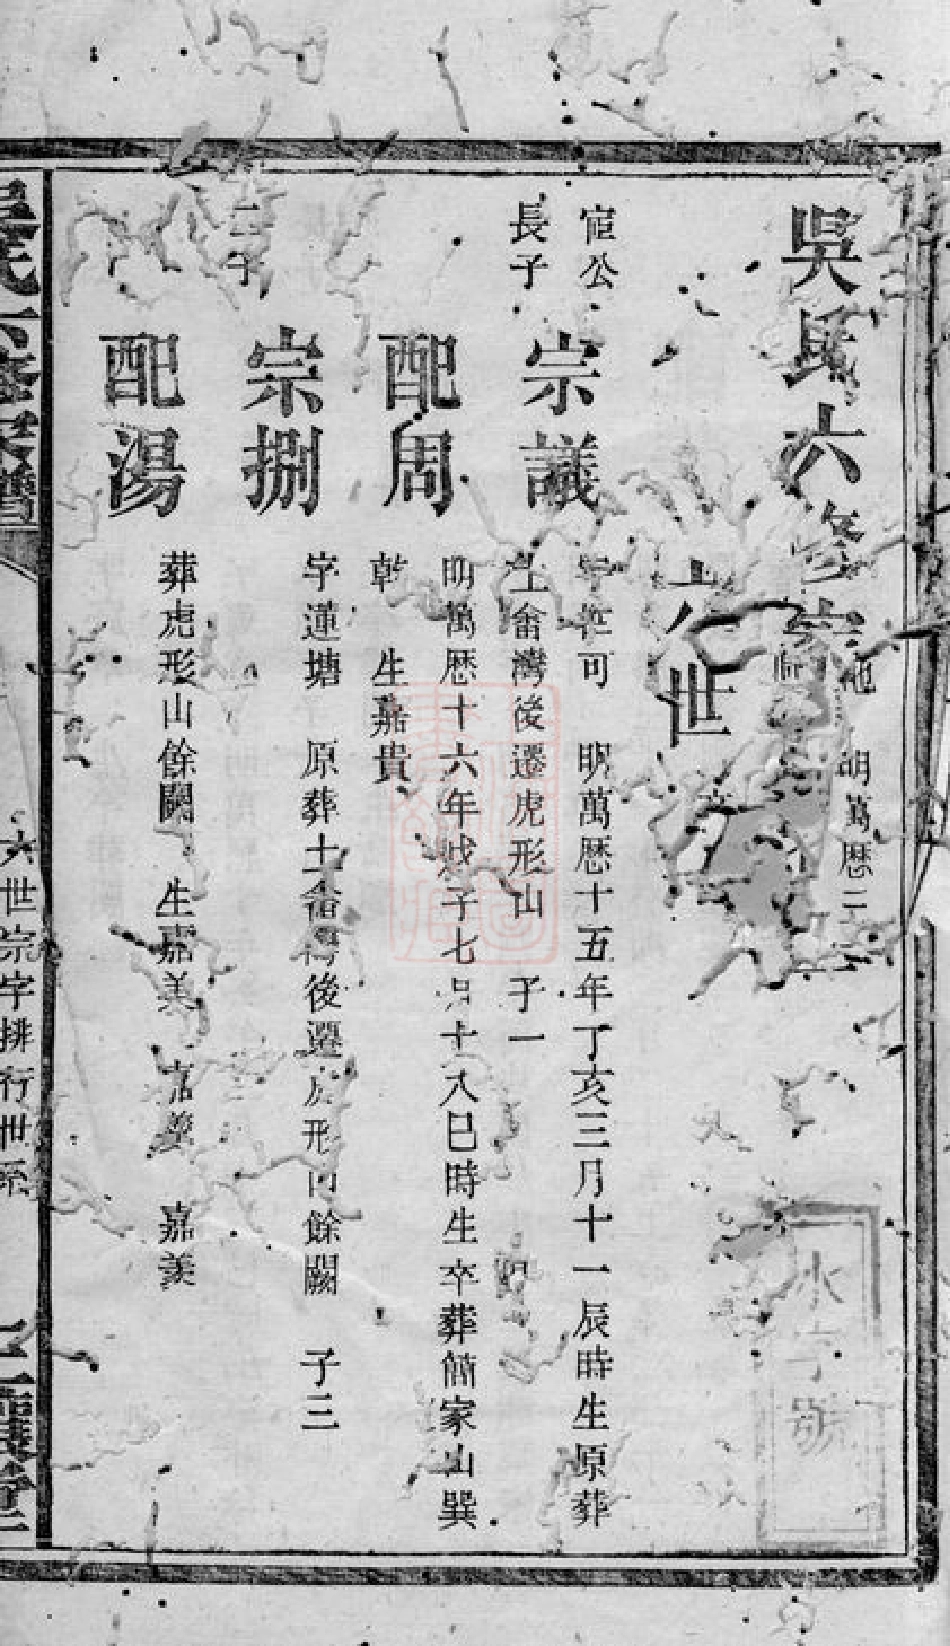 吳氏六修家
明萬歷二
水字號
世
宦公
長子
宗議
字在可 明萬歷十五年丁亥三月十一辰時生原葬
土畬灣後遷虎形山 子一
配周
明萬歷十六年戊子七月十八巳時生卒葬簡家山巽
乾 生嘉貴
二子
宗捌
字蓮塘 原葬土畬灣後遷虎形山餘闕 子三
配湯
葬虎形山餘闕 生嘉美 嘉 嘉羨
吳氏六修家譜
六世宗字排行世系